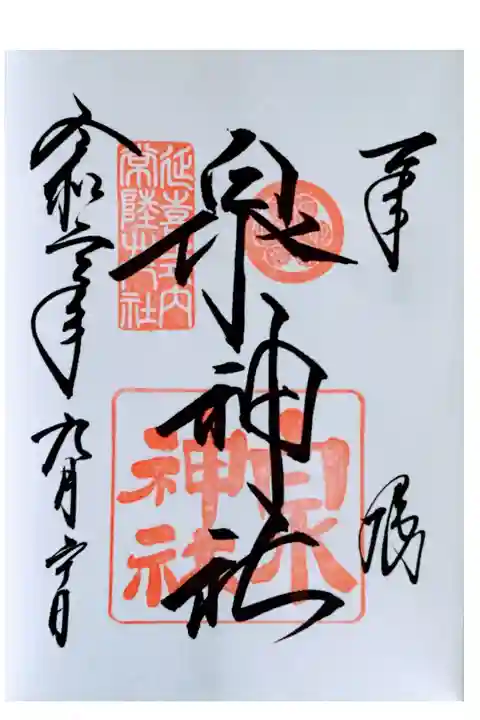 奉拝
泉神社
泉神社
延喜式内
常陸
社
令和六年九月六日